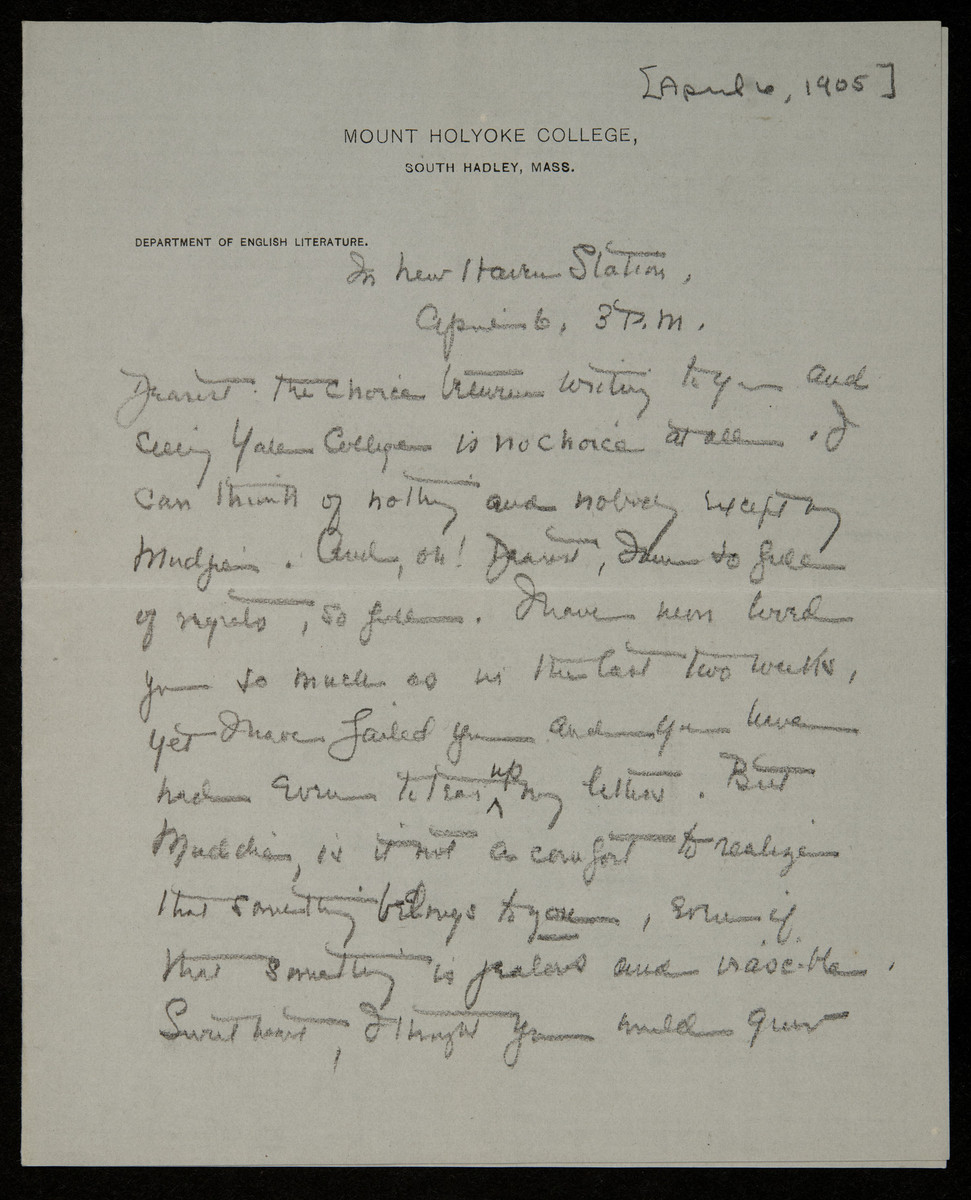 [April 6, 1905]
MOUNT HOLYOKE COLLEGE,
SOUTH HADLEY, MASS.
DEPARTMENT OF ENGLISH LITERATURE.
In New Haven Station,
April 6, 3 P.M.
Dearest: The choice between writing to you and
seeing Yale College is no choice at all. I
can think of nothing and nobody except my
. And, oh! Dearest, I am so full
of regrets, so full. I have never loved
you so much as in the last two weeks,
yet I have failed you and you have
had even to tear up my letters. But
, is it not a comfort to realize
that something belongs to you, even if
that something is jealous and irascible.
Sweetheart, I thought you would grow